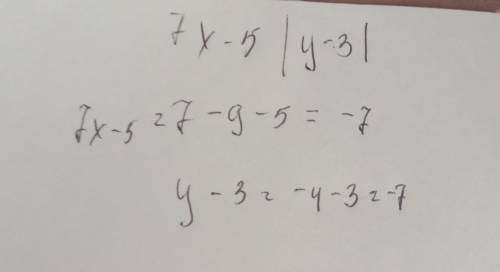 7x-5 |y-3|
7x-5 = 7-9-5 = -7
y-3 = -4-3 = -7